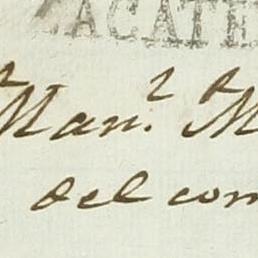 ZACATE
Man.l M
del com